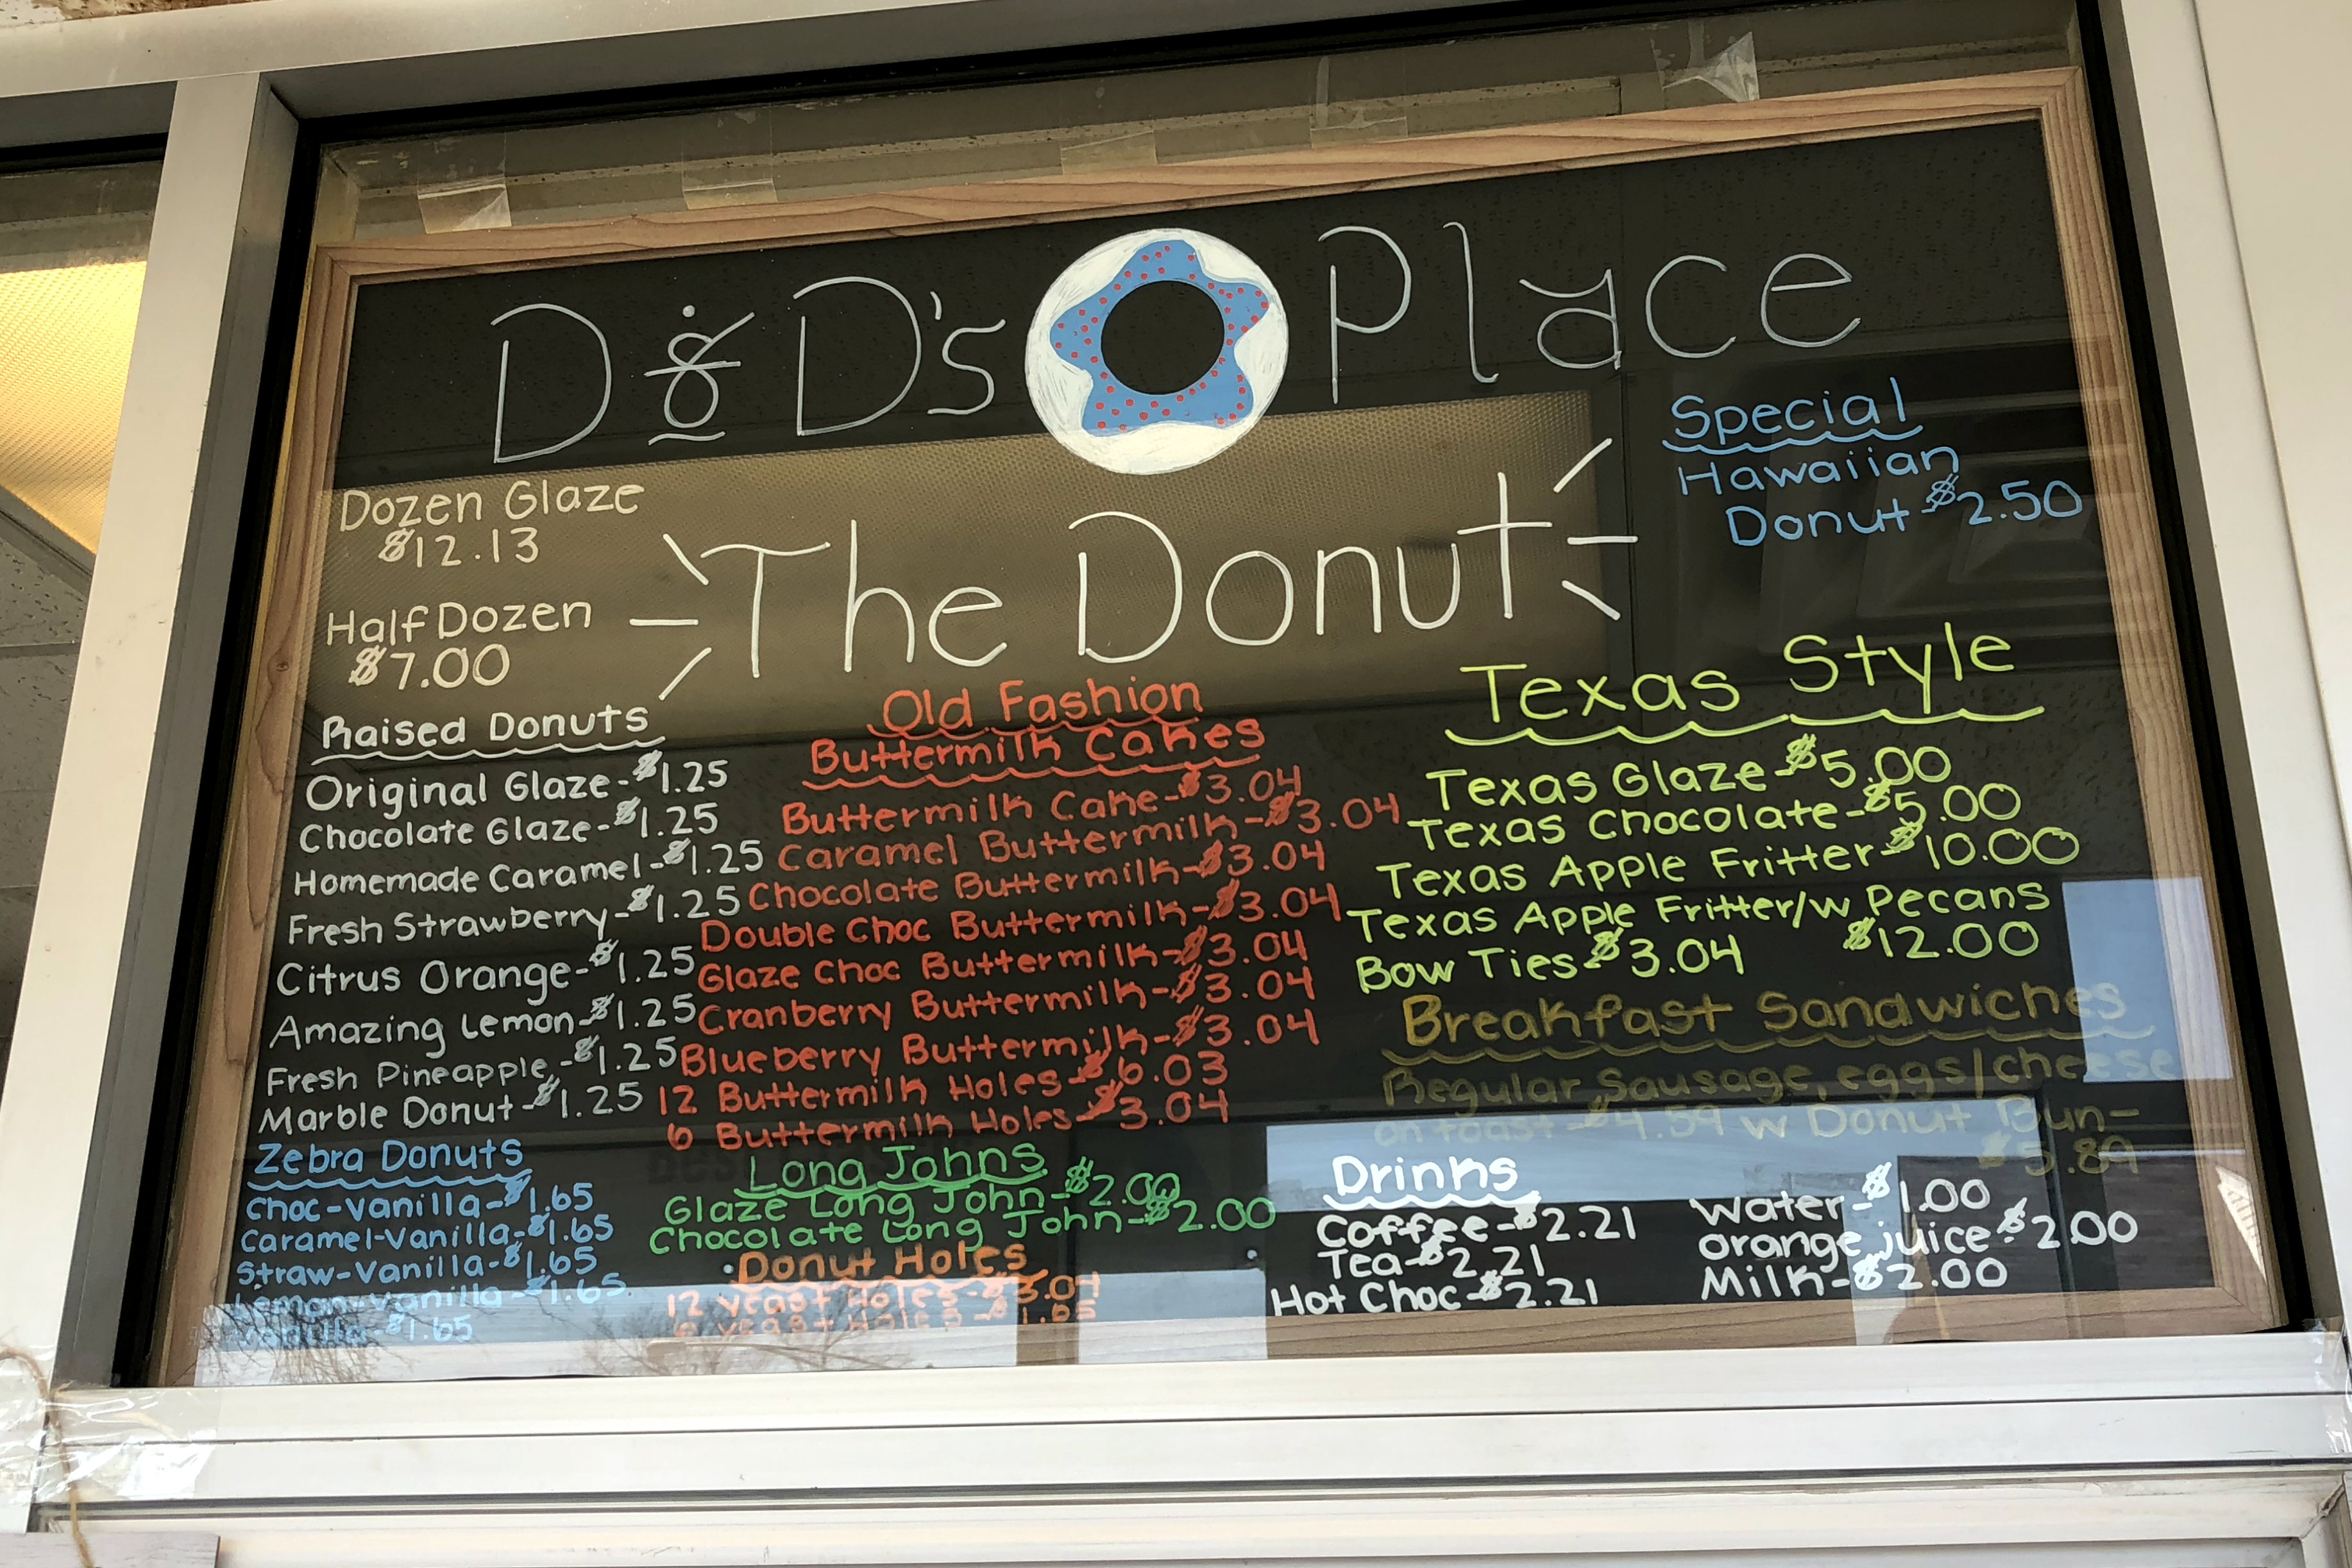 D & D's Place
The Donut
Dozen Glaze
$12.13
Half Dozen
$7.00
Special
Hawaiian
Donut-$2.50
Raised Donuts
Original Glaze-$1.25
Chocolate Glaze-$1.25
Homemade Caramel-$1.25
Fresh Strawberry-$1.25
Citrus Orange-$1.25
Amazing Lemon-$1.25
Fresh Pineapple-$1.25
Marble Donut-$1.25
Zebra Donuts
Choc-Vanilla-$1.65
Caramel-Vanilla-$1.65
Straw-Vanilla-$1.65
Lemon-Vanilla-$1.65
Vanilla-$1.65
Old Fashion
Buttermilk Cakes
Buttermilk Cake-$3.04
Caramel Buttermilk-$3.04
Chocolate Buttermilk-$3.04
Double Choc Buttermilk-$3.04
Glaze Choc Buttermilk-$3.04
Cranberry Buttermilk-$3.04
Blueberry Buttermilk-$3.04
12 Buttermilk Holes-$6.03
6 Buttermilk Holes-$3.04
Long Johns
Glaze Long John-$2.00
Chocolate Long John-$2.00
Donut Holes
12 Yeast Holes-
6 Yeast Holes-
Texas Style
Texas Glaze-$5.00
Texas Chocolate-$5.00
Texas Apple Fritter-$10.00
Texas Apple Fritter/w Pecans
$12.00
Bow Ties-$3.04
Breakfast Sandwiches
Regular Sausage, eggs/cheese
on toast-$4.59 w Donut Bun-
$5.89
Drinks
Coffee-$2.21
Tea-$2.21
Hot Choc-$2.21
Water-$1.00
Orange juice-$2.00
Milk-$2.00